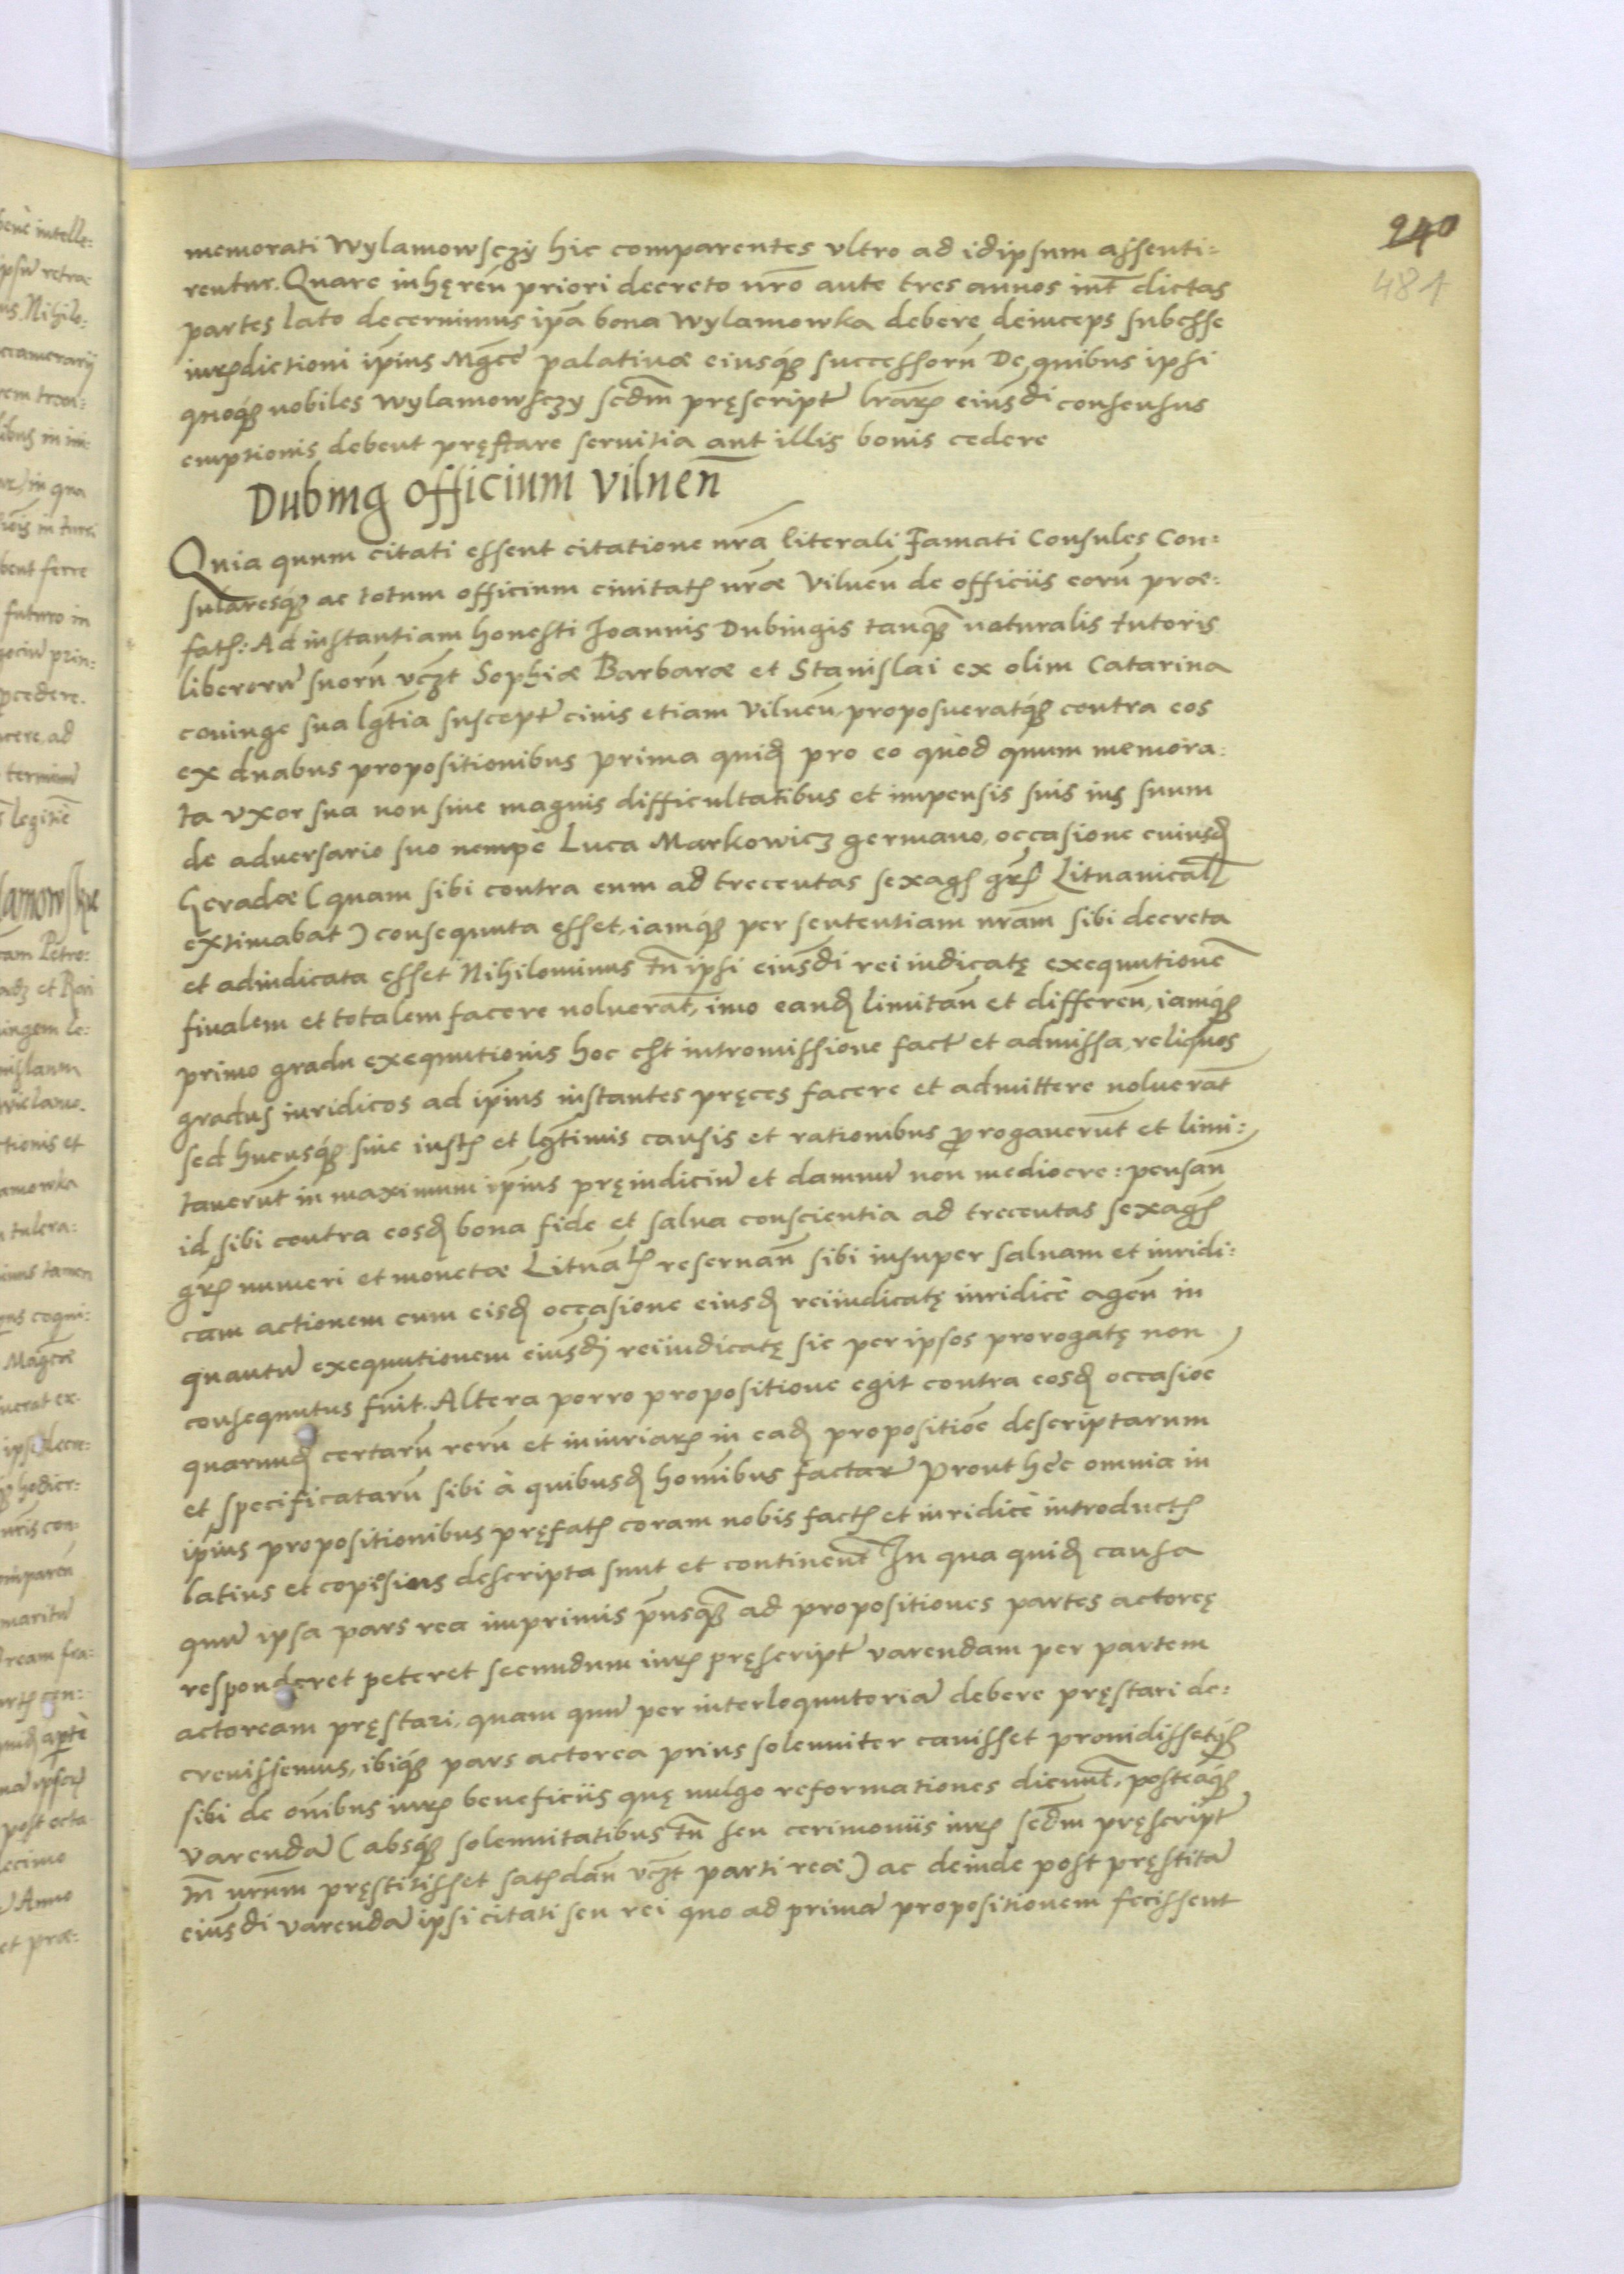 240
481
memorati Wylamowsczy hic comparentes vltro ad idipsum assenti:
rentur. Quare inhęreñ priori decreto nr̃o ante tres annos int̃ dictas
partes lato decernimus ip̃a bona Wylamowka debere deinceps subesse
iurꝭdictioni ip̃ius Mg̃ce palatinæ eiusqꝫ successorũ De quibus ipsi
quoqꝫ nobiles Wylamowsczy scd̃m pręscript lr̃arꝝ eiusd̃i consensus
emptionis debent pręstare seruitia aut illis bonis cedere
Dubing officium vilneñ
Quia quum citati essent citatione nr̃a literali Famati Consules Con:
sularesqꝫ ac totum officium ciuitatꝭ nr̃æ Vilneñ de officiis eorũ præ:
fatꝭ: Ad instantiam honesti Joannis Dubingis tanqꝫ naturalis tutoris
liberorũ suorũ vcz̃t Sophiæ Barbaræ et Stanislai ex olim Catarina
coniuge sua lg̃tia suscept ciuis etiam Vilneñ, proposueratqꝫ contra eos
ex duabus propositionibus prima quidẽ pro eo quòd quum memora:
ta vxor sua non sine magnis difficultatibus et impensis suis ius suum
de aduersario suo nempe Luca Markowicz germano, occasione cuiusdẽ
Geradæ (quam sibi contra eum ad trecentas sexagꝭ grꝭ Lituanicalꝭ
extimabat) consequuta esset, iamqꝫ per sententiam nr̃am sibi decreta
et adiudicata esset Nihilominus tñ ipsi eiusd̃i rei iudicatę exequutionẽ
finalem et totalem facere noluerãt, imo eandẽ limitañ et differeñ, iamqꝫ
primo gradu exequutionis hoc est intromissione fact et admissa, reliquos
gradus iuridicos ad ip̃ius instantes pręces facere et admittere noluerãt
sed hucusqꝫ sine iustꝭ et lg̃timis causis et rationibus ꝓrogauerũt et limi:
tauerũt in maximum ip̃ius pręiudiciũ et damnũ non mediocre: pensañ
id sibi contra eosdẽ bona fide et salua conscientia ad trecentas sexagꝭ
grꝭ numeri et monetæ Lituãlꝭ reseruañ sibi insuper saluam et iuridi:
cam actionem cum eisdẽ occasione eiusdẽ reiiudicatę iuridicè ageñ in
quantũ exequutionem eiusd̃i reiiudicatę sic per ipsos prorogatę non
consequutus fũit. Altera porro propositione egit contra eosdẽ occasiõe
quarundẽ certarũ rerũ et iniuriarꝝ in eadẽ propositiõe descriptarum
et specificatarũ sibi à quibusdẽ hom̃ibus factarũ Prout hęc omnia in
ip̃ius propositionibus pręfatꝭ coram nobis factꝭ et iuridicè introductꝭ
latius et copiosius descripta sunt et continent̃ In qua quidẽ causa
quũ ipsa pars rea imprimis p̃usqꝫ ad propositiones partes actoreę
responderet peteret secundum iurꝭ pręscript varendam per partem
actoream pręstari, quam quũ per interloquutoriã debere pręstari de:
creuissemus, ibiqꝫ pars actorea prius solenniter cauisset prouidissetqꝫ
sibi de om̃ibus iurꝭ beneficiis quę vulgo reformationes dicunt̃, posteaqꝫ
varendã (absqꝫ solennitatibus tñ seu cerimoniis iurꝭ scd̃m pręscript
m̃ nr̃um pręstitisset satꝭdañ vcz̃t parti reæ) ac deinde post pręstitã
eiusd̃i varendã ipsi citati seu rei quo ad primã propositionem fecissent